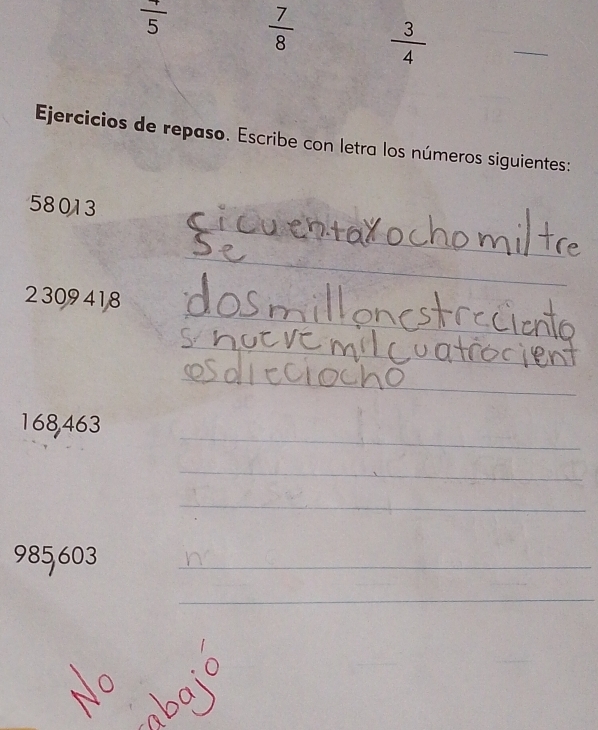 5
7
8
3
4
Ejercicios de repaso. Escribe con letra los números siguientes:
58 013
sicuentayochomiltre
se
2 309 418
dosmillonestrecciento
s nuevemilcuatrocient
osdieciocho
168,463
985,603
No
abajó